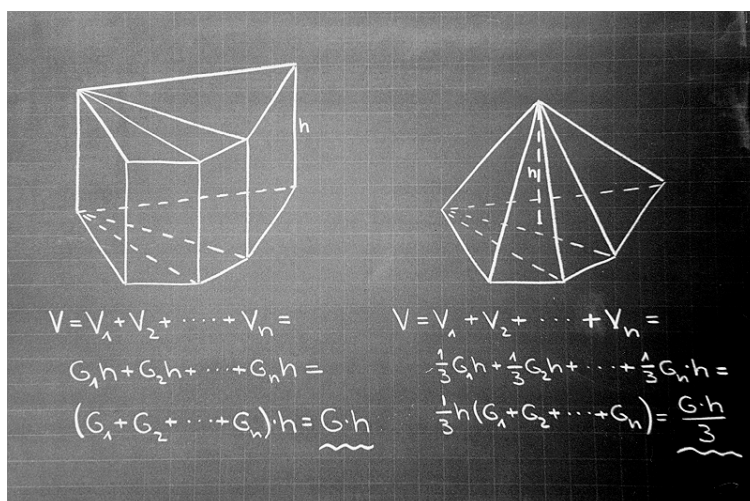 h
V = V₁ + V₂ + ····· + Vₙ =
G₁h + G₂h + ····· + Gₙh =
(G₁ + G₂ + ····· + Gₙ)·h = G·h
h
V = V₁ + V₂ + ····· + Vₙ =
1/3 G₁h + 1/3 G₂h + ····· + 1/3 Gₙ·h =
1/3 h(G₁ + G₂ + ····· + Gₙ) = G·h/3